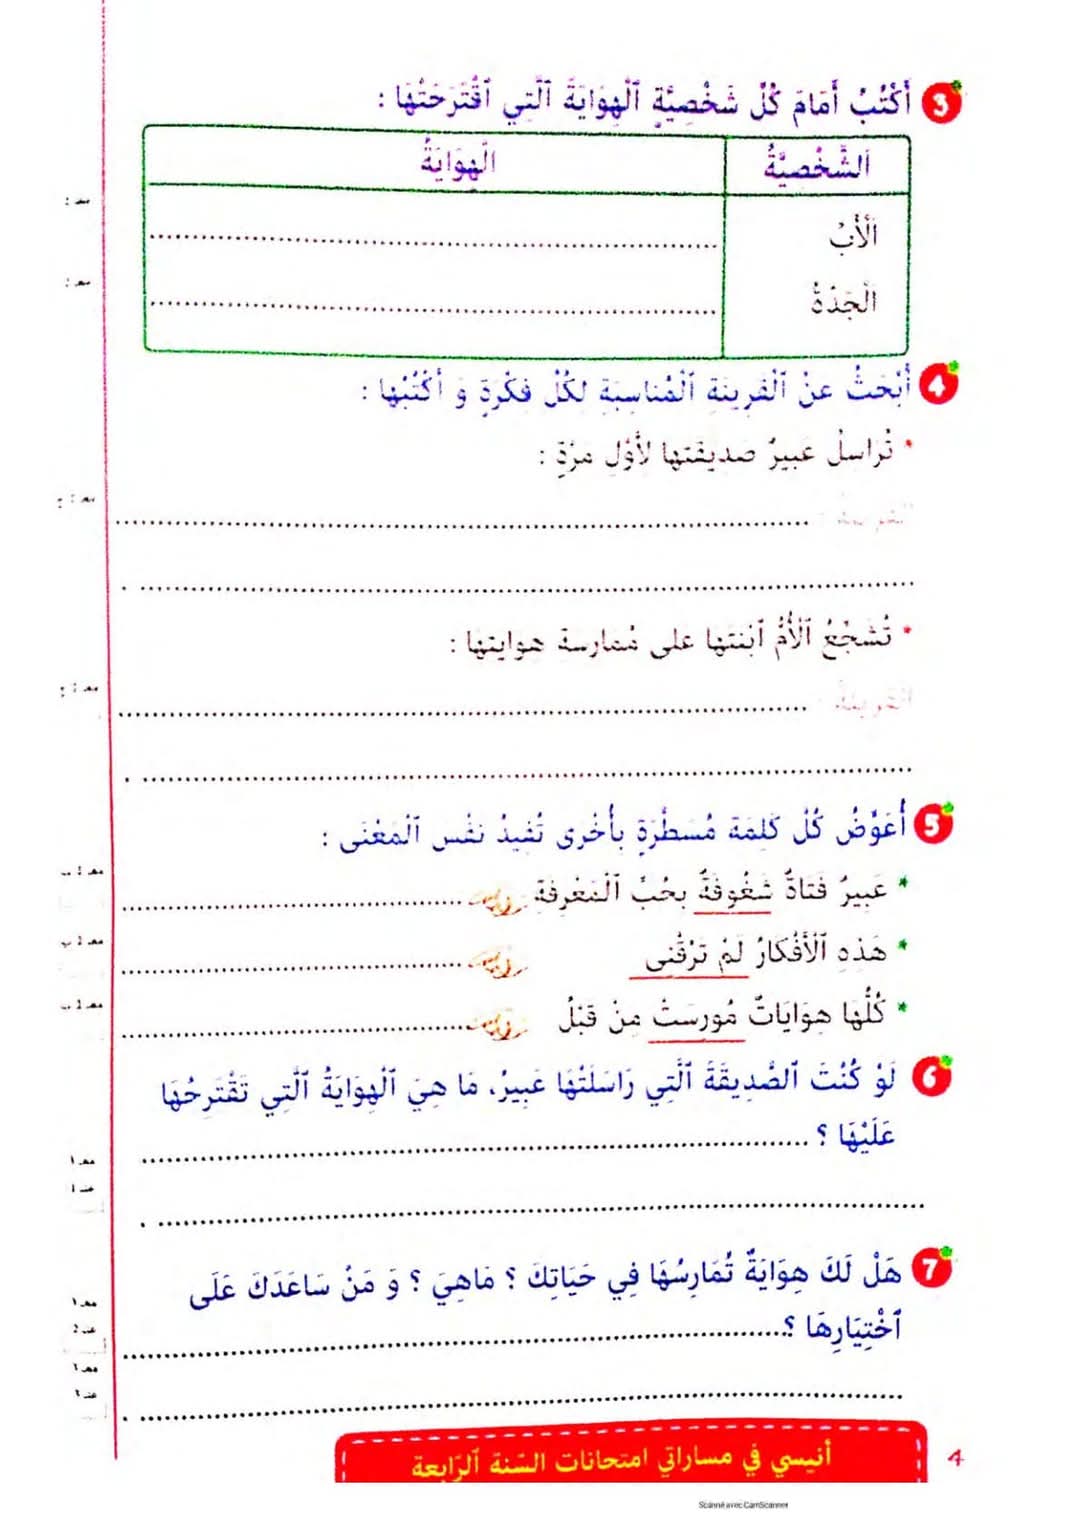 3 أَكْتُبُ أَمَامَ كُلِّ شَخْصِيَّةٍ ٱلْهِوَايَةَ ٱلَّتِي ٱقْتَرَحَتْهَا :
اَلشَّخْصِيَّةُ اَلْهِوَايَةُ
اَلْأَبُ ................................
اَلْجَدَّةُ ................................
4 أَبْحَثُ عَنْ ٱلْقَرِينَةِ ٱلْمُنَاسِبَةِ لِكُلِّ فِكْرَةٍ وَ أَكْتُبُها :
* تُراسِلُ عَبيرُ صَديقَتها لِأَوَّلِ مَرَّةٍ :
القرينة : ................................
................................ .
* تُشَجِّعُ ٱلْأُمُّ ٱبْنَتَهَا عَلى مُمَارسَة هِوَايَتِهَا :
القرينة : ................................
................................ .
5 أُعَوِّضُ كُلَّ كَلِمَة مُسَطَّرَةٍ بِأُخْرَى تُفِيدُ نَفْسَ ٱلْمَعْنَى :
* عَبِيرُ فَتَاةٌ شَغُوفَةٌ بِحُبِّ ٱلْمَعْرِفَةِ ................................
* هَذِهِ ٱلْأَفْكَارُ لَمْ تَرُقْنِي ................................
* كُلُّهَا هِوَايَاتٌ مُورِسَتْ مِنْ قَبْلُ ................................
6 لَوْ كُنْتَ ٱلصَّدِيقَةَ ٱلَّتِي رَاسَلَتْهَا عَبِيرُ، مَا هِيَ ٱلْهِوَايَةُ ٱلَّتِي تَقْتَرِحُهَا
عَلَيْهَا ؟ ................................
................................ .
7 هَلْ لَكَ هِوَايَةٌ تُمَارِسُهَا فِي حَيَاتِكَ ؟ مَاهِيَ ؟ وَ مَنْ سَاعَدَكَ عَلَى
ٱخْتِيَارِهَا ؟ ................................
................................ .
أنيسي في مساراتي امتحانات السّنة ٱلرّابعة
4
Scanné avec CamScanner